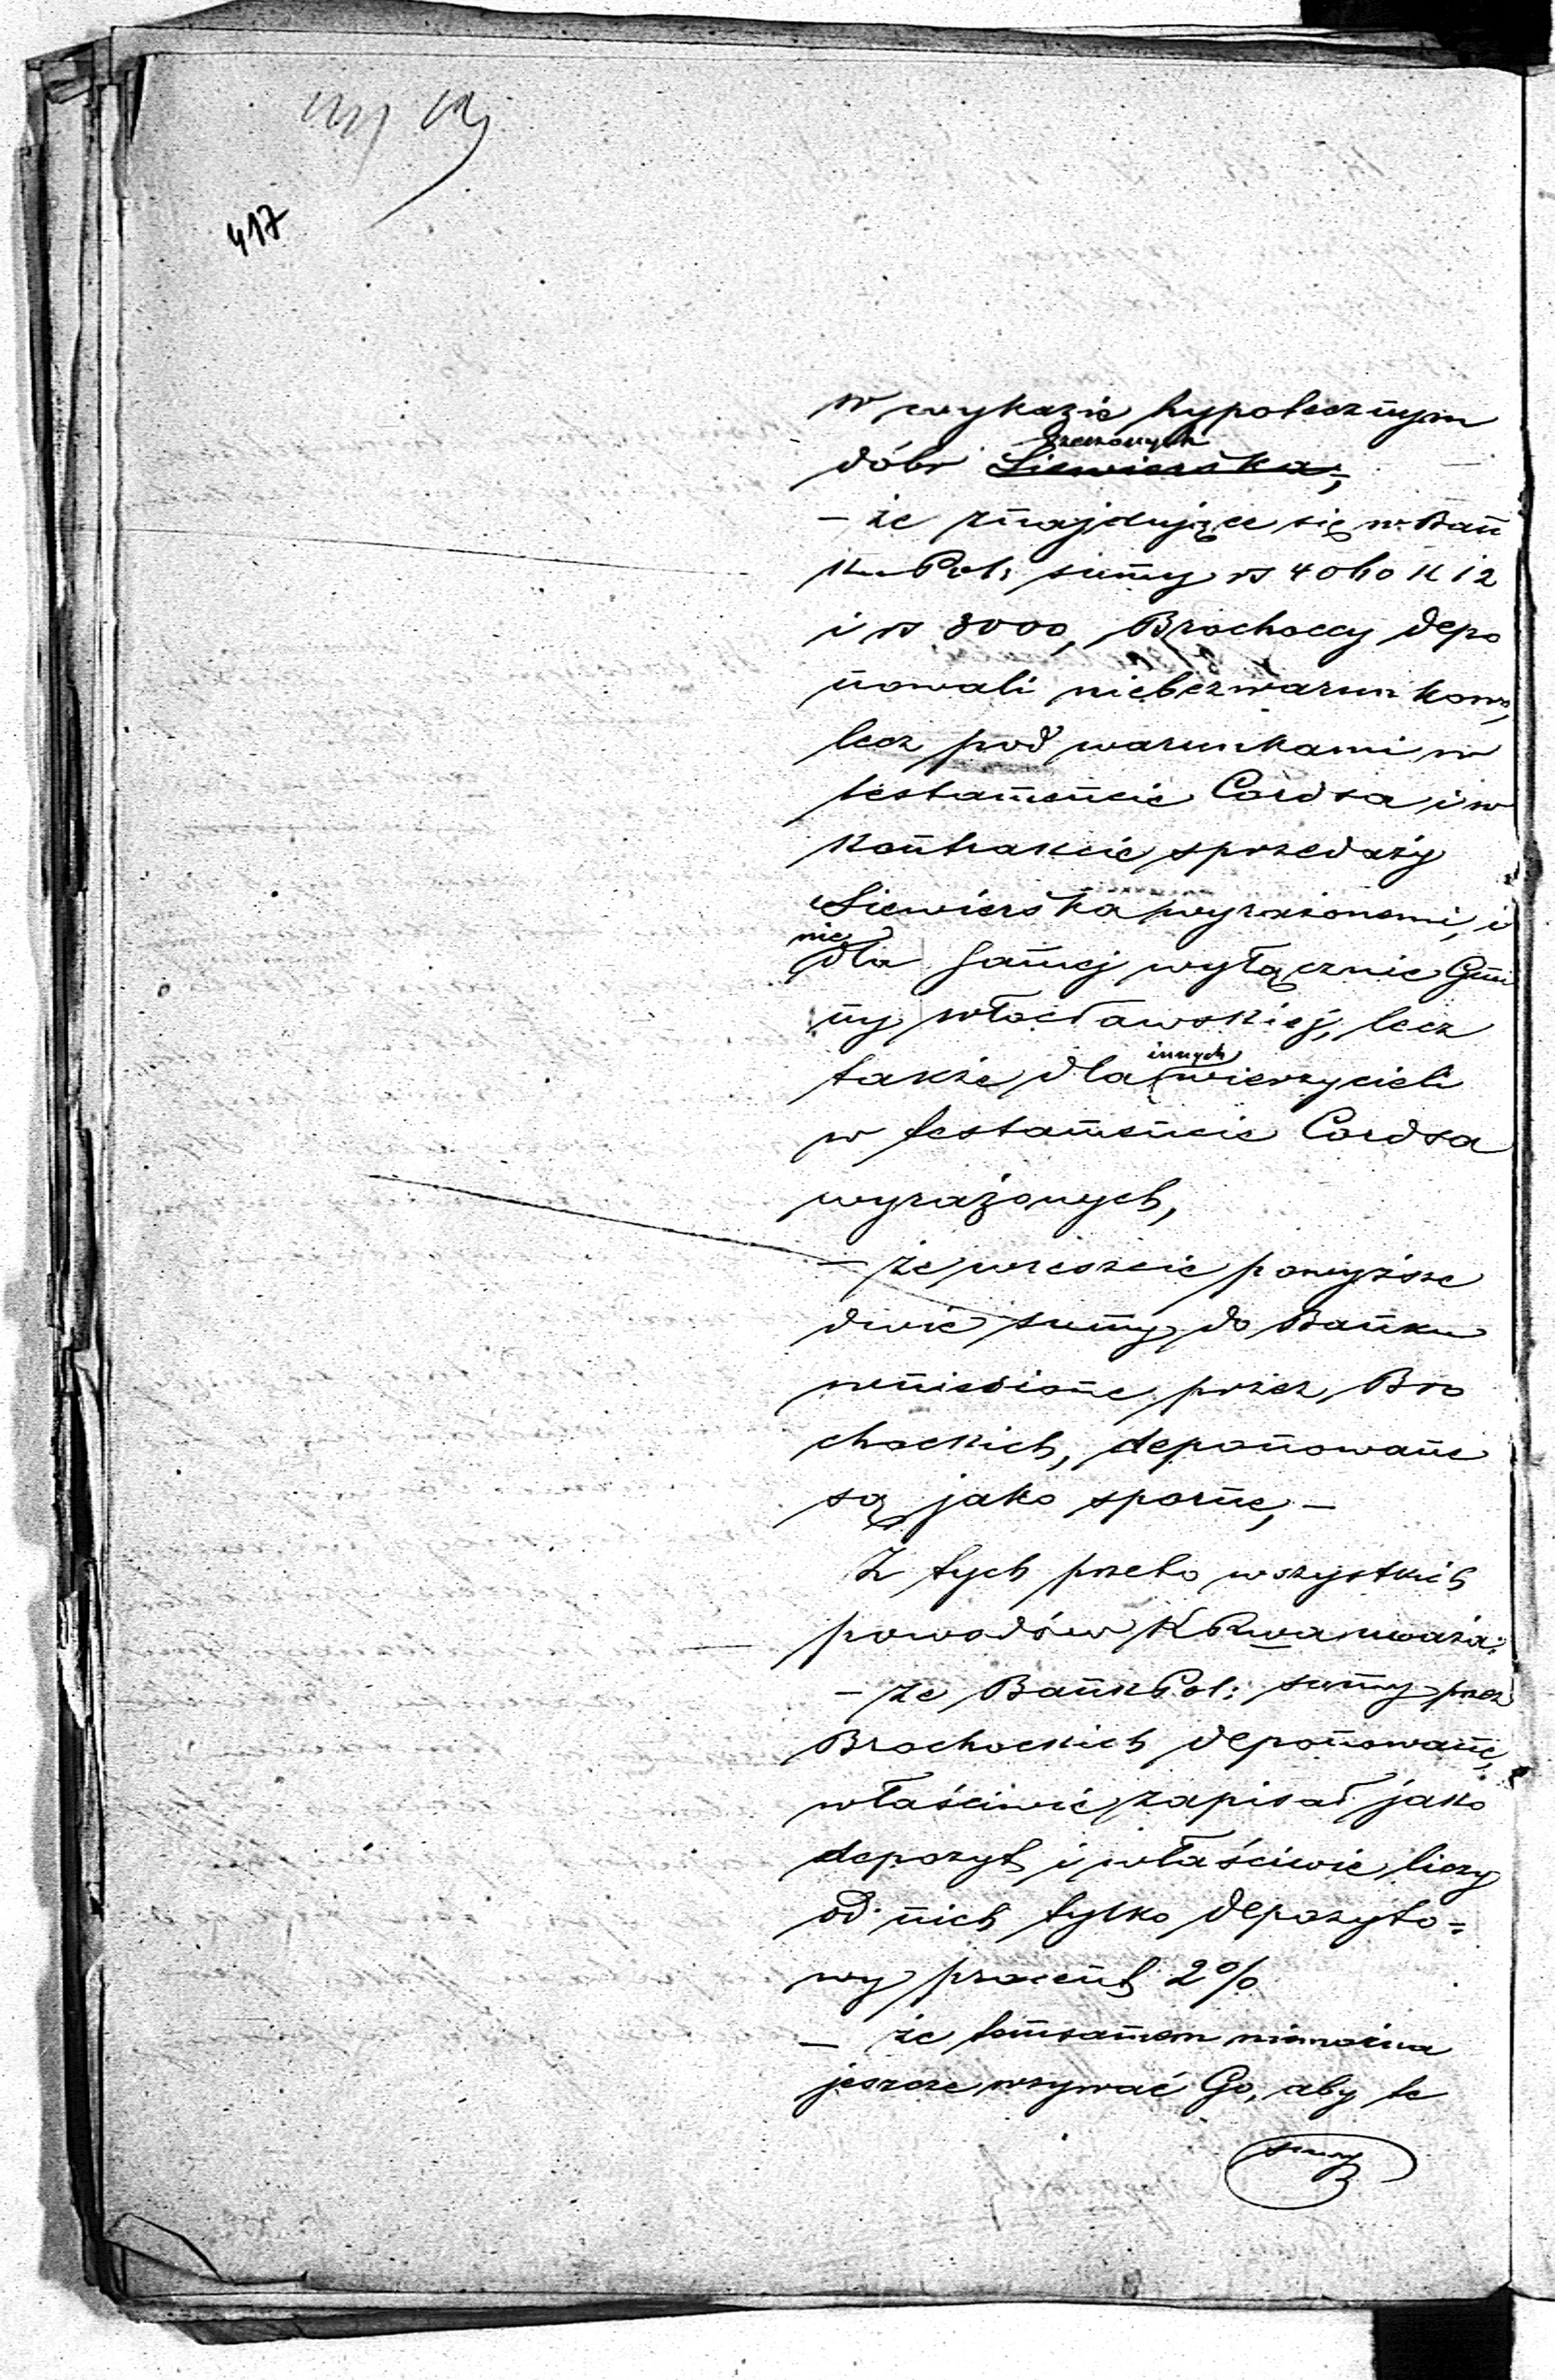 417
w wykazie hypotecznym
rzeczonych
dóbr Siewierska;
– że znajdujące się w Ban
ku Pol: summy rs 4060 k 12
i rs 3000, Brochoccy depo
nowali niebezwarunkowo,
lecz pod warunkami w
testamencie Cordsa i w
kontrakcie sprzedaży
Siewierska wyrażonemi, i
nie
dla samej wyłącznie Gmi
ny włocławskiej, lecz
innych
także dla wierzycieli
w testamencie Cordsa
wyrażonych,
– że wreszcie powyższe
dwie summy do Banku
wniesione przez Bro
chockich, deponowane
są jako sporne, –
Z tych przeto wszystkich
powodów K uważa:
– że Bank Pol: summy przez
Brochockich deponowane,
właściwie zapisał jako
depozyt i właściwie liczy
od nich tylko depozyto=
wy procent 2%
– że temsamem niemożna
jeszcze wzywać Go, aby te
summy